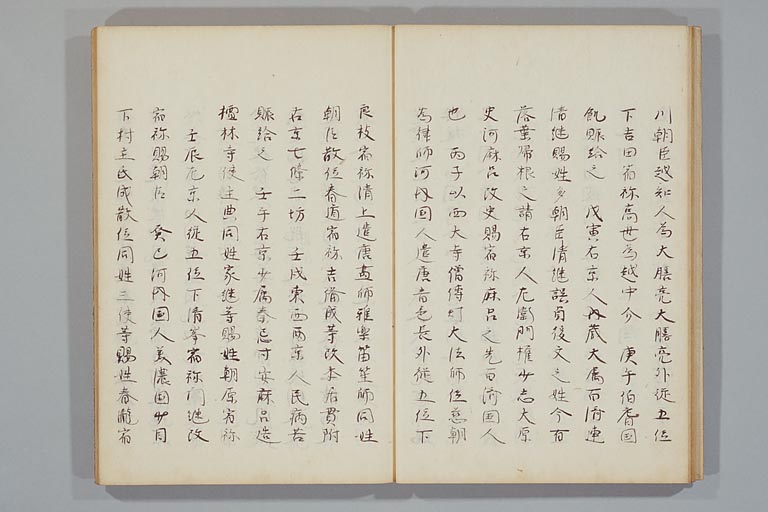 川朝臣越知人為大膳亮大膳亮外従五位
下吉田宿祢高世為越中介 庚午伯耆国
飢賑給之 戊寅右京人内蔵大属百済連
清継賜姓多朝臣清継誤為後文之姓今有
落葉帰根之請右京人左衛門権少志大原
史河麻呂改史賜宿祢麻呂之先百済国人
也 丙子以西大寺僧傳灯大法師位慈朝
為律師河内国人遣唐音声長外従五位下
良枝宿祢清上遣唐画師雅楽笛笙師同姓
朝臣散位春道宿祢吉備成等改本居貫附
右京七條二坊 壬戌東西両京人民病苦
賑給之 壬午右京少属秦忌寸安麻呂造
檀林寺使主典同姓家継等賜姓朝原宿祢
壬辰左京人従五位下清峯宿祢門継改
宿祢賜朝臣 癸巳河内国人美濃国少目
下村主氏成散位同姓三使等賜姓春瀧宿